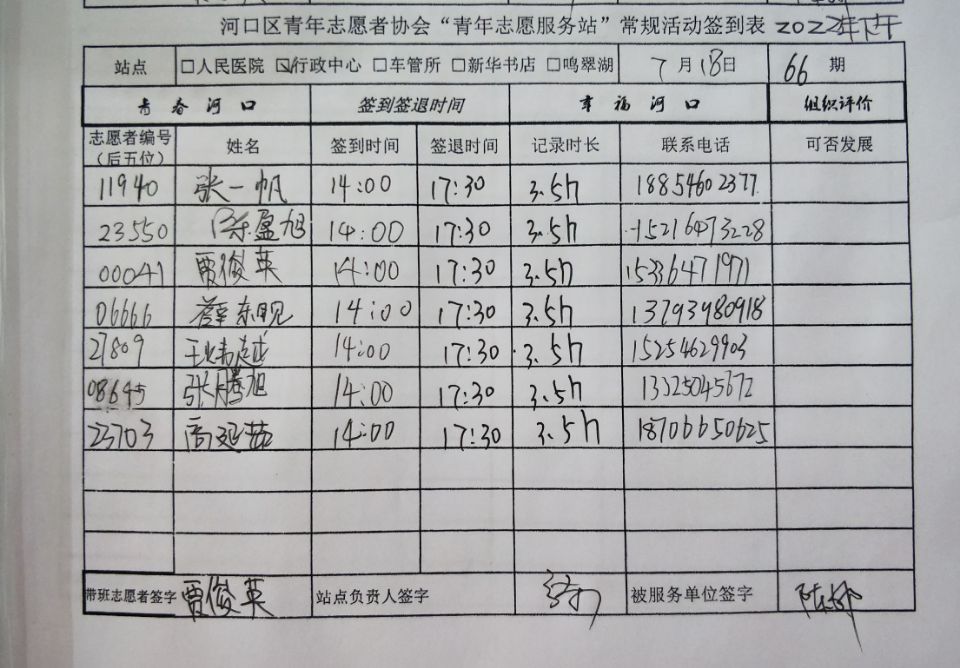 河口区青年志愿者协会“青年志愿服务站”常规活动签到表 2022年下午
站点 □人民医院 ☑行政中心 □车管所 □新华书店 □鸣翠湖 7月18日 66期
青春河口 签到签退时间 幸福河口 组织评价
志愿者编号（后五位） 姓名 签到时间 签退时间 记录时长 联系电话 可否发展
11940 张一帆 14:00 17:30 3.5h 18854602377
23550 陈盈旭 14:00 17:30 3.5h 15216473228
00041 贾俊英 14:00 17:30 3.5h 15336471971
06666 薛东晛 14:00 17:30 3.5h 13793980918
27809 14:00 17:30 3.5h 15254629903
08645 张腾旭 14:00 17:30 3.5h 13325045672
23703 高延茹 14:00 17:30 3.5h 18706650625
带班志愿者签字 贾俊英 站点负责人签字 被服务单位签字